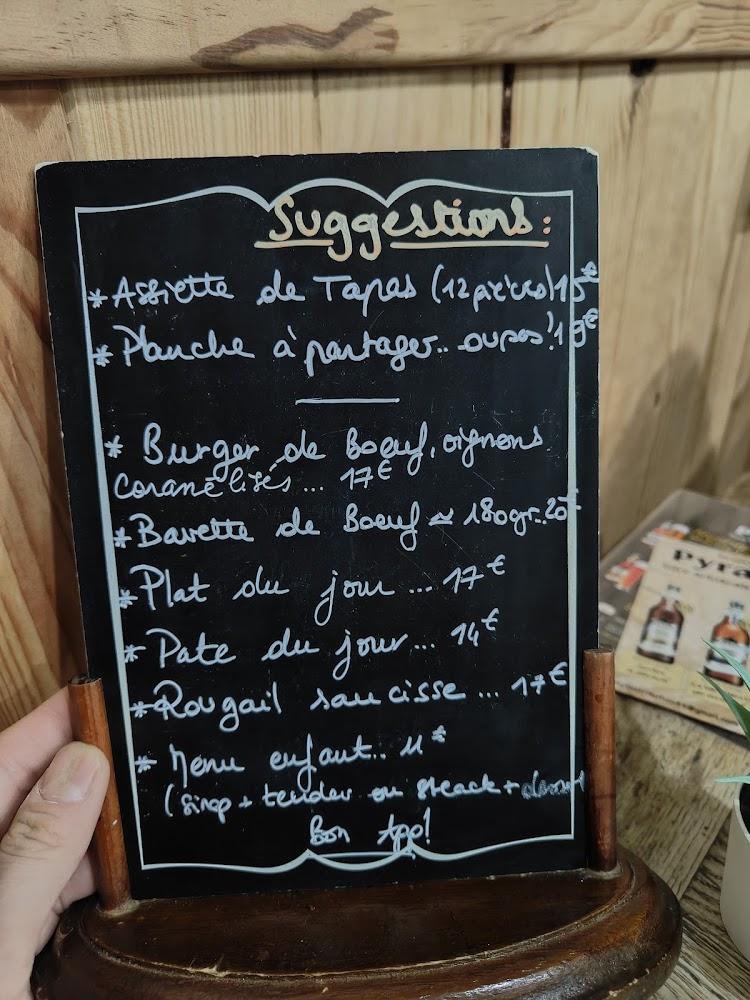 Suggestions:
* Assiette de Tapas (12 pièces) 15€
* Planche à partager.. oupas! 19€
* Burger de Boeuf, oignons
caramélisés... 17€
* Bavette de Boeuf ≈ 180gr.. 20€
* Plat du jour ... 17€
* Pate du jour... 14€
* Rougail saucisse ... 17€
* Menu enfant.. 11€
(sirop + tender ou steack + dessert
Bon App!
Pyra